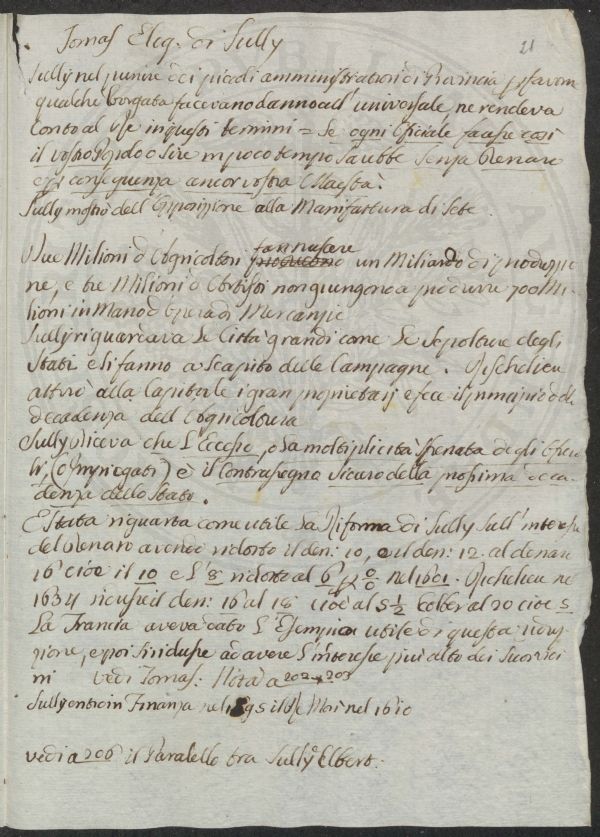 Tomas Elog. di Sully
21
Sully nel punire dei piccoli amministratori di Provincia p favorir
qualche borgata facevano danno all' universale, ne rendeva
Conto al Re in questi termini = Se ogni Officiale facesse così
il vostro Regno o Sire in poco tempo sarebbe senza Denaro
e p conseguenza ancor vostra Maestà.
Sully mostrò dell' Opposizione alla Manifattura di Sete.
Due Milioni d'Agricoltori fan nascere un Miliardo di produzio
ne, e tre Milioni d'Artisti non giungono a produrre 700 Mi
lioni in Mano d'Opera di Mercanzie
Sully riguardava le Città grandi come le Sepolture degli
Stati e si fanno a scapito delle Campagne. Richelieu
attirò alla Capitale i gran proprietarj e fece il principio della
decadenza dell' Agricoltura
Sully diceva che l'Eccesso, o la moltiplicità sfrenata degli Officia
li, (o Impiegati) è il Contrasegno sicuro della prossima deca
denza dello Stato.
È stata riguarda come utile la Riforma di Sully sull' interesse
del Denaro avendo ridotto il den: 10, e il den: 12. al denaro
16 cioè il 10 e l'8 ridotto al 6 p 0/0 nel 1601. Richelieu nel
1634 ridusse il den: 16 al 18 cioè al 5 1/2 Colbert al 20 cioè 5
La Francia aveva dato l'Esempio utile di questa riduz
zione, e poi si ridusse ad avere l'interesse più alto dei suoi vici
ni vedi Tomas: Nota a 202 203
Sully entrò in Finanza nel 1595 il Re Morì nel 1610
vedi a 206 il Paralello tra Sully e Colbert.